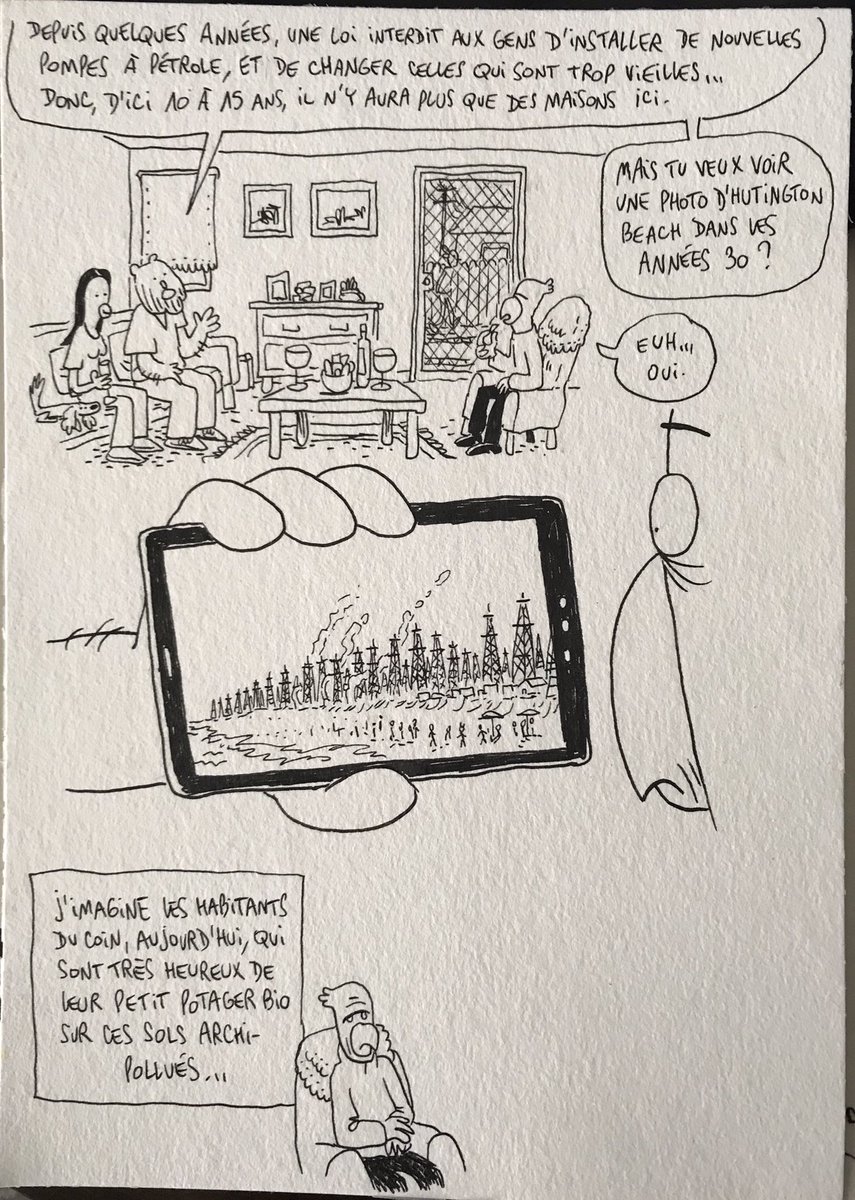 DEPUIS QUELQUES ANNÉES, UNE LOI INTERDIT AUX GENS D'INSTALLER DE NOUVELLES
POMPES À PÉTROLE, ET DE CHANGER CELLES QUI SONT TROP VIEILLES...
DONC, D'ICI 10 À 15 ANS, IL N'Y AURA PLUS QUE DES MAISONS ICI.
MAIS TU VEUX VOIR
UNE PHOTO D'HUTINGTON
BEACH DANS LES
ANNÉES 30 ?
EUH...
OUI.
J'IMAGINE LES HABITANTS
DU COIN, AUJOURD'HUI, QUI
SONT TRÈS HEUREUX DE
LEUR PETIT POTAGER BIO
SUR CES SOLS ARCHI-
POLLUÉS...